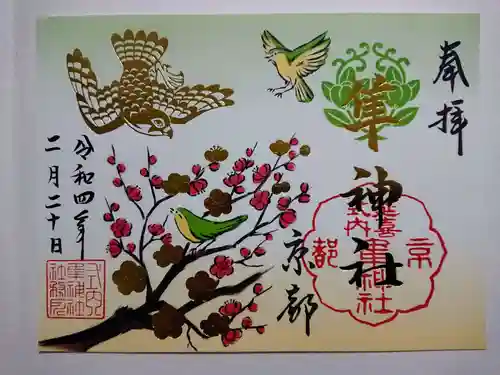 奉拝
隼神社
京都
令和四年
二月二十日
延喜
式内
隼神社
京
都
式内
隼神社